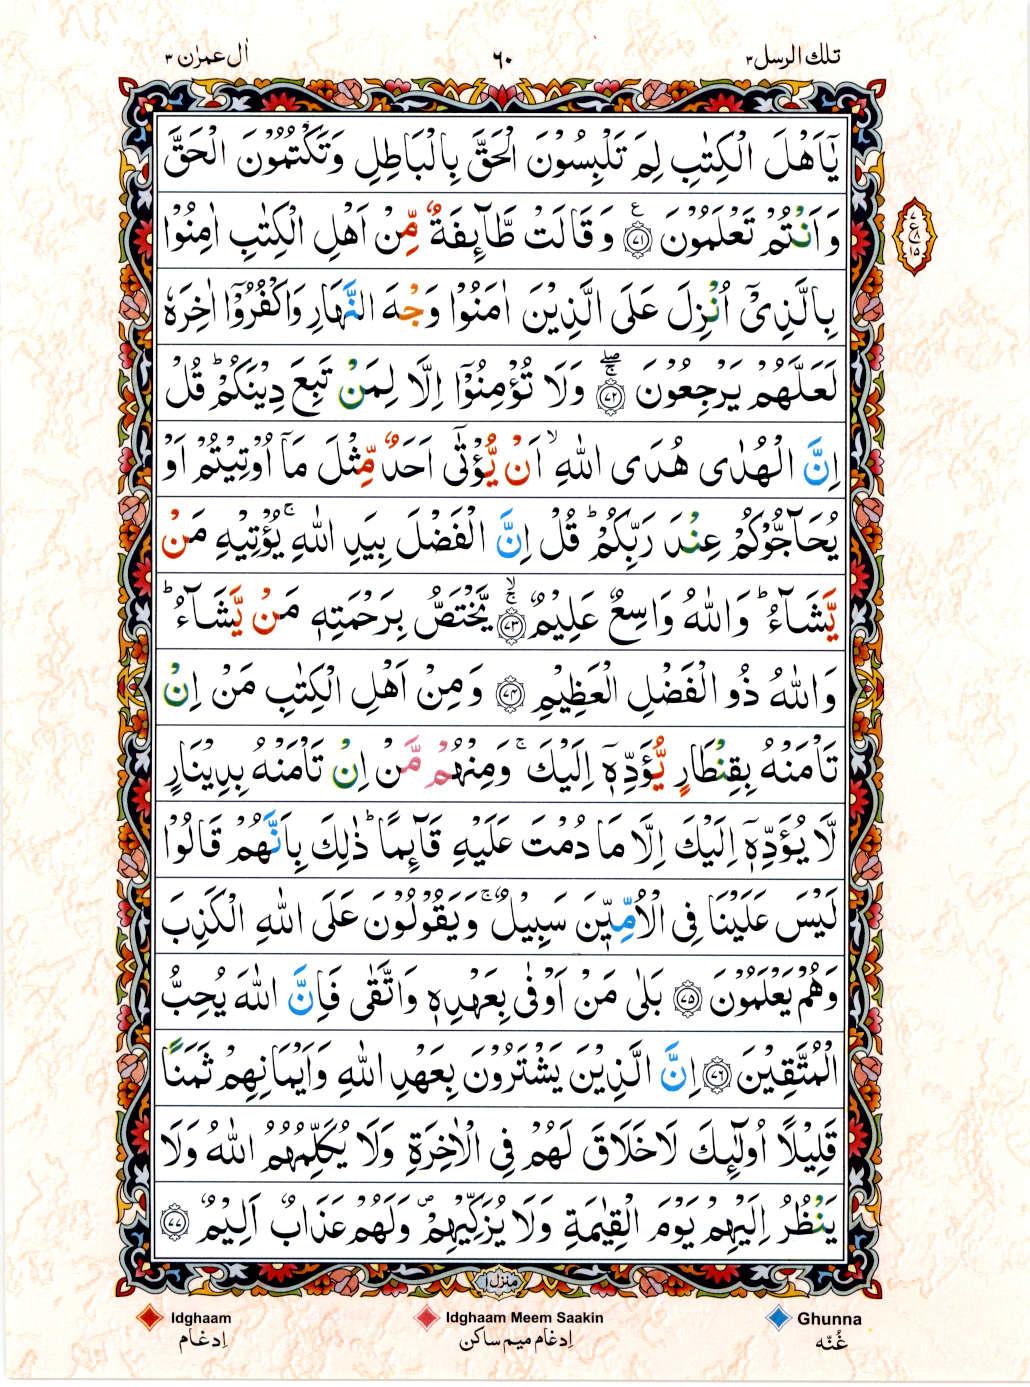 اٰل عمرٰن ٣
٦٠
تلك الرسل ٣
يٰٓاَهْلَ الْكِتٰبِ لِمَ تَلْبِسُوْنَ الْحَقَّ بِالْبَاطِلِ وَتَكْتُمُوْنَ الْحَقَّ
وَاَنْتُمْ تَعْلَمُوْنَ ﴿٧١﴾ ع وَقَالَتْ طَّآىِٕفَةٌ مِّنْ اَهْلِ الْكِتٰبِ اٰمِنُوْا
٧
ع
٨
١٥
بِالَّذِيْٓ اُنْزِلَ عَلَى الَّذِيْنَ اٰمَنُوْا وَجْهَ النَّهَارِ وَاكْفُرُوْٓا اٰخِرَهٗ
لَعَلَّهُمْ يَرْجِعُوْنَ ﴿٧٢﴾ وَلَا تُؤْمِنُوْٓا اِلَّا لِمَنْ تَبِعَ دِيْنَكُمْ ؕ قُلْ
اِنَّ الْهُدٰى هُدَى اللّٰهِ ۙ اَنْ يُّؤْتٰٓى اَحَدٌ مِّثْلَ مَآ اُوْتِيْتُمْ اَوْ
يُحَآجُّوْكُمْ عِنْدَ رَبِّكُمْ ؕ قُلْ اِنَّ الْفَضْلَ بِيَدِ اللّٰهِ ۚ يُؤْتِيْهِ مَنْ
يَّشَآءُ ؕ وَاللّٰهُ وَاسِعٌ عَلِيْمٌ ﴿٧٣﴾ يَّخْتَصُّ بِرَحْمَتِهٖ مَنْ يَّشَآءُ ؕ
وَاللّٰهُ ذُو الْفَضْلِ الْعَظِيْمِ ﴿٧٤﴾ وَمِنْ اَهْلِ الْكِتٰبِ مَنْ اِنْ
تَاْمَنْهُ بِقِنْطَارٍ يُّؤَدِّهٖٓ اِلَيْكَ ۚ وَمِنْهُمْ مَّنْ اِنْ تَاْمَنْهُ بِدِيْنَارٍ
لَّا يُؤَدِّهٖٓ اِلَيْكَ اِلَّا مَا دُمْتَ عَلَيْهِ قَآىِٕمًا ؕ ذٰلِكَ بِاَنَّهُمْ قَالُوْا
لَيْسَ عَلَيْنَا فِى الْاُمِّيّٖنَ سَبِيْلٌ ۚ وَيَقُوْلُوْنَ عَلَى اللّٰهِ الْكَذِبَ
وَهُمْ يَعْلَمُوْنَ ﴿٧٥﴾ بَلٰى مَنْ اَوْفٰى بِعَهْدِهٖ وَاتَّقٰى فَاِنَّ اللّٰهَ يُحِبُّ
الْمُتَّقِيْنَ ﴿٧٦﴾ اِنَّ الَّذِيْنَ يَشْتَرُوْنَ بِعَهْدِ اللّٰهِ وَاَيْمَانِهِمْ ثَمَنًا
قَلِيْلًا اُولٰٓىِٕكَ لَا خَلَاقَ لَهُمْ فِي الْاٰخِرَةِ وَلَا يُكَلِّمُهُمُ اللّٰهُ وَلَا
يَنْظُرُ اِلَيْهِمْ يَوْمَ الْقِيٰمَةِ وَلَا يُزَكِّيْهِمْ ۪ وَلَهُمْ عَذَابٌ اَلِيْمٌ ﴿٧٧﴾
منزل ١
Idghaam
اِدغام
Idghaam Meem Saakin
اِدغام میم ساکن
Ghunna
غُنّه